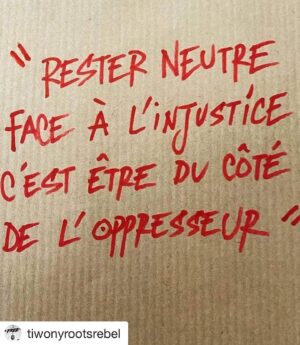 " RESTER NEUTRE
FACE À L'INJUSTICE
C'EST ÊTRE DU CÔTÉ
DE L'OPPRESSEUR "
tiwonyrootsrebel